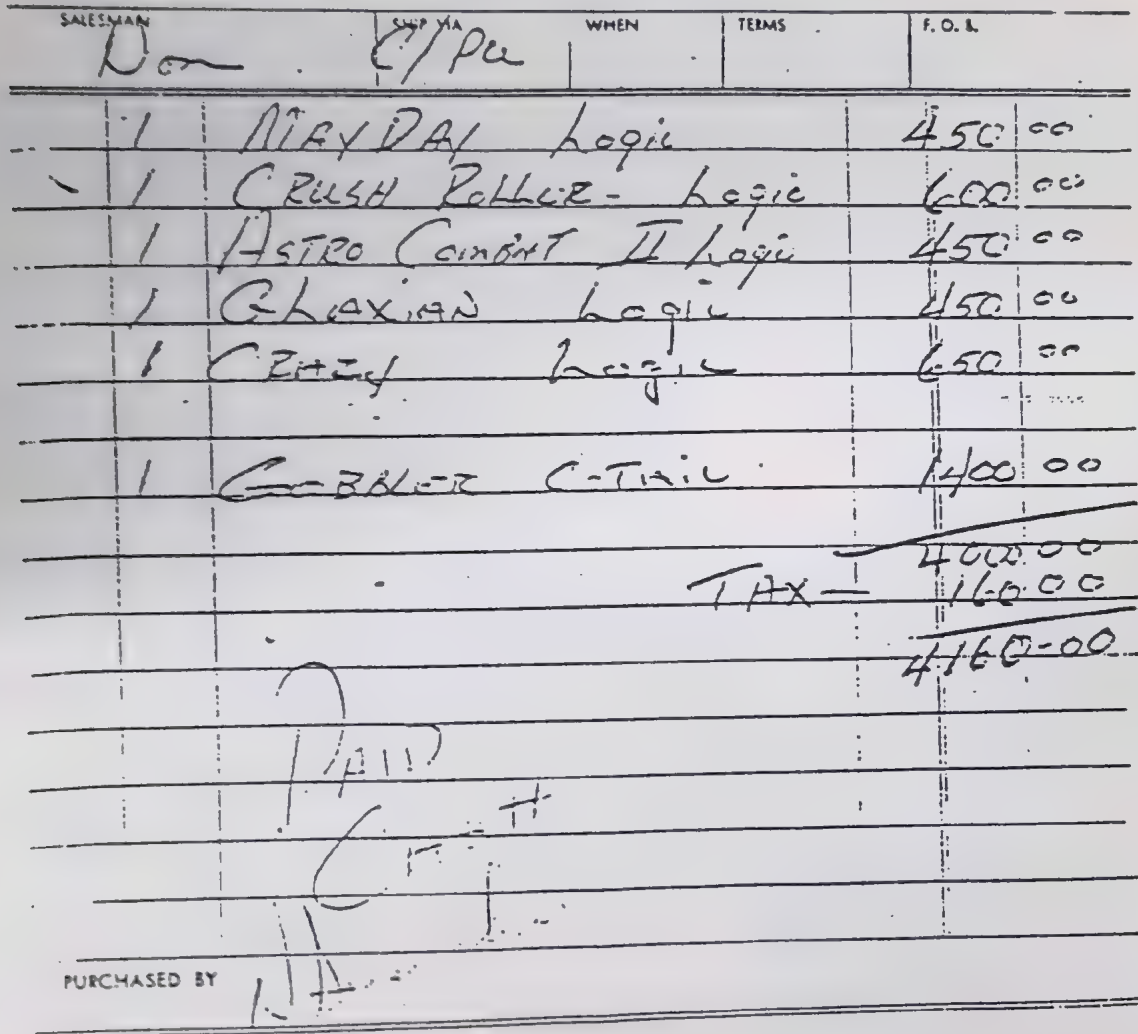 SALESMAN SHIP VIA WHEN TERMS F. O. B.
Don C/Pu
1 MAYDAY Logic 450 00
1 CRUSH ROLLER - Logic 600 00
1 ASTRO COMBAT II Logic 450 00
1 GLAXIAN Logic 450 00
1 CRAZY Logic 650 00
1 GOBBLER C-TAIL 1400 00
4000.00
TAX — 160.00
4160-00
PAID
CASH
PURCHASED BY